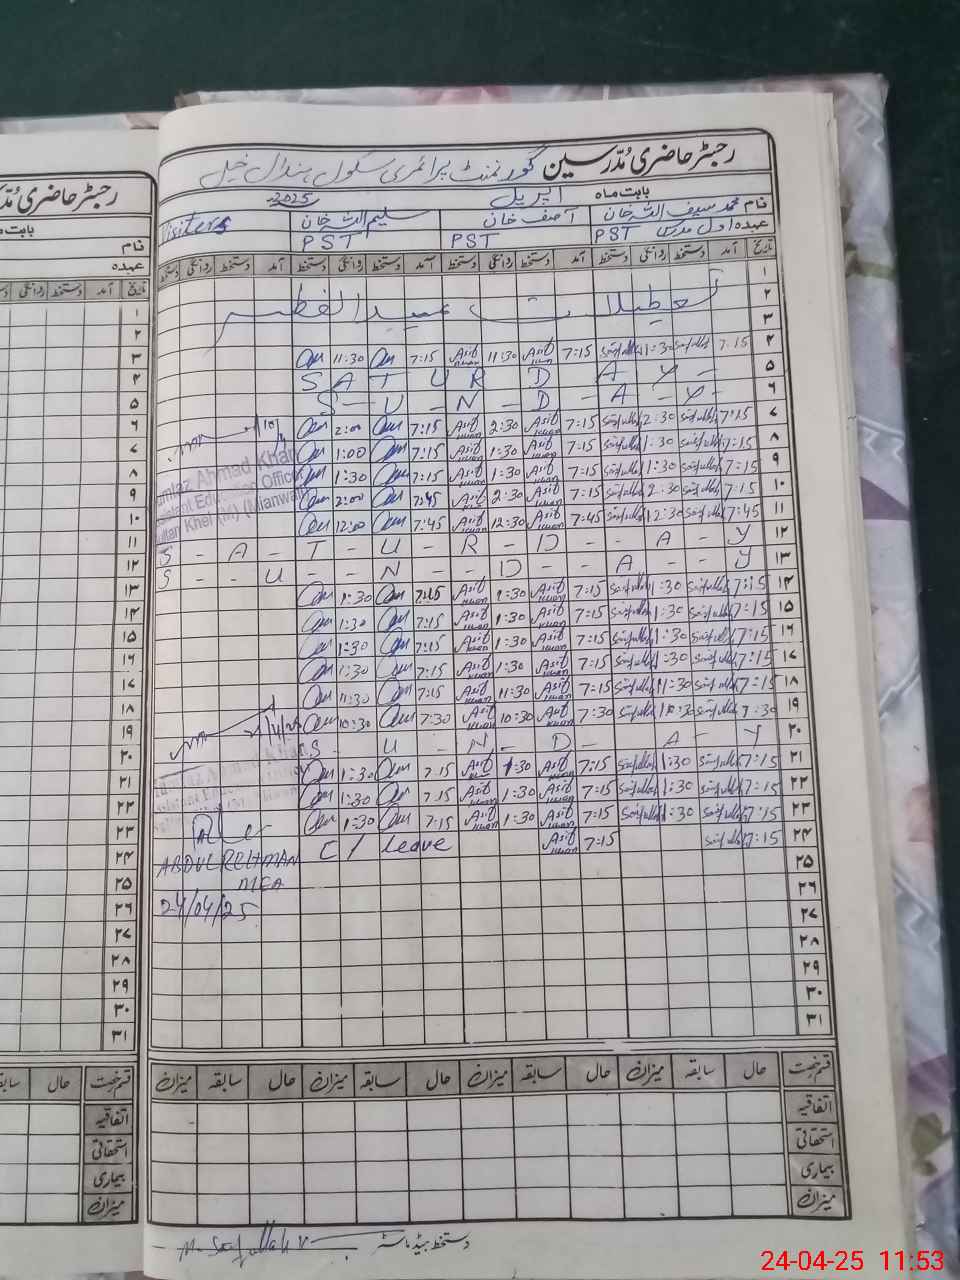 رجسٹر حاضری مُدّرسین گورنمنٹ پرائمری سکول پنڈال خیل
بابت ماہ اپریل 2025
نام محمد سیف اللہ خان آصف خان سلیم اللہ خان Visiters
عہدہ اول مدرس PST PST PST
تاریخ آمد دستخط روانگی دستخط آمد دستخط روانگی دستخط آمد دستخط روانگی دستخط آمد دستخط روانگی دستخط
۱
۲ تعطیلات عیدالفطر
۳
۴ 7:15 Saifullah 11:30 Saifullah 7:15 Asif Khan 11:30 Asif Khan 7:15 11:30
۵ S A T U R D A Y
۶ S - U - N - D - A - Y -
۷ 7:15 Saifullah 2:30 Saifullah 7:15 Asif Khan 2:30 Asif Khan 7:15 2:00
۸ 7:15 Saifullah 1:30 Saifullah 7:15 Asif Khan 1:30 Asif Khan 7:15 1:00
۹ 7:15 Saifullah 1:30 Saifullah 7:15 Asif Khan 1:30 Asif Khan 7:15 1:30
۱۰ 7:15 Saifullah 2:30 Saifullah 7:15 Asif Khan 2:30 Asif Khan 7:45 2:00
۱۱ 7:45 Saifullah 12:30 Saifullah 7:45 Asif Khan 12:30 Asif Khan 7:45 12:00
Ahmad Khan
Assistant Education Officer
Khel (M) (Mianwali)
۱۲ S - A - T - U - R - D - A - Y
۱۳ S - - U - - N - - D - - A - - Y
۱۴ 7:15 Saifullah 1:30 Saifullah 7:15 Asif Khan 1:30 Asif Khan 7:15 1:30
۱۵ 7:15 Saifullah 1:30 Saifullah 7:15 Asif Khan 1:30 Asif Khan 7:15 1:30
۱۶ 7:15 Saifullah 1:30 Saifullah 7:15 Asif Khan 1:30 Asif Khan 7:15 1:30
۱۷ 7:15 Saifullah 1:30 Saifullah 7:15 Asif Khan 1:30 Asif Khan 7:15 1:30
۱۸ 7:15 Saifullah 11:30 Saifullah 7:15 Asif Khan 11:30 Asif Khan 7:15 11:30
۱۹ 7:30 Saifullah 10:30 Saifullah 7:30 Asif Khan 10:30 Asif Khan 7:30 10:30
۲۰ S - U - N - D - A - Y
۲۱ 7:15 Saifullah 1:30 Saifullah 7:15 Asif Khan 1:30 Asif Khan 7:15 1:30
۲۲ 7:15 Saifullah 1:30 Saifullah 7:15 Asif Khan 1:30 Asif Khan 7:15 1:30
۲۳ 7:15 Saifullah 1:30 Saifullah 7:15 Asif Khan 1:30 Asif Khan 7:15 1:30
۲۴ 7:15 Saifullah 7:15 Asif Khan C/ leave
ABDUL REHMAN
MEA
24/04/25
۲۵
۲۶
۲۷
۲۸
۲۹
۳۰
۳۱
قسم رخصت حال سابقہ میزان حال سابقہ میزان حال سابقہ میزان حال سابقہ میزان
اتفاقیہ
استحقاقی
بیماری
میزان
دستخط ہیڈ ماسٹر M. Saifullah
رجسٹر حاضری مُدّ
بابت
نام
عہدہ
تاریخ آمد دستخط روانگی دستخط
۱
۲
۳
۴
۵
۶
۷
۸
۹
۱۰
۱۱
۱۲
۱۳
۱۴
۱۵
۱۶
۱۷
۱۸
۱۹
۲۰
۲۱
۲۲
۲۳
۲۴
۲۵
۲۶
۲۷
۲۸
۲۹
۳۰
۳۱
قسم رخصت حال
اتفاقیہ
استحقاقی
بیماری
میزان
24-04-25 11:53